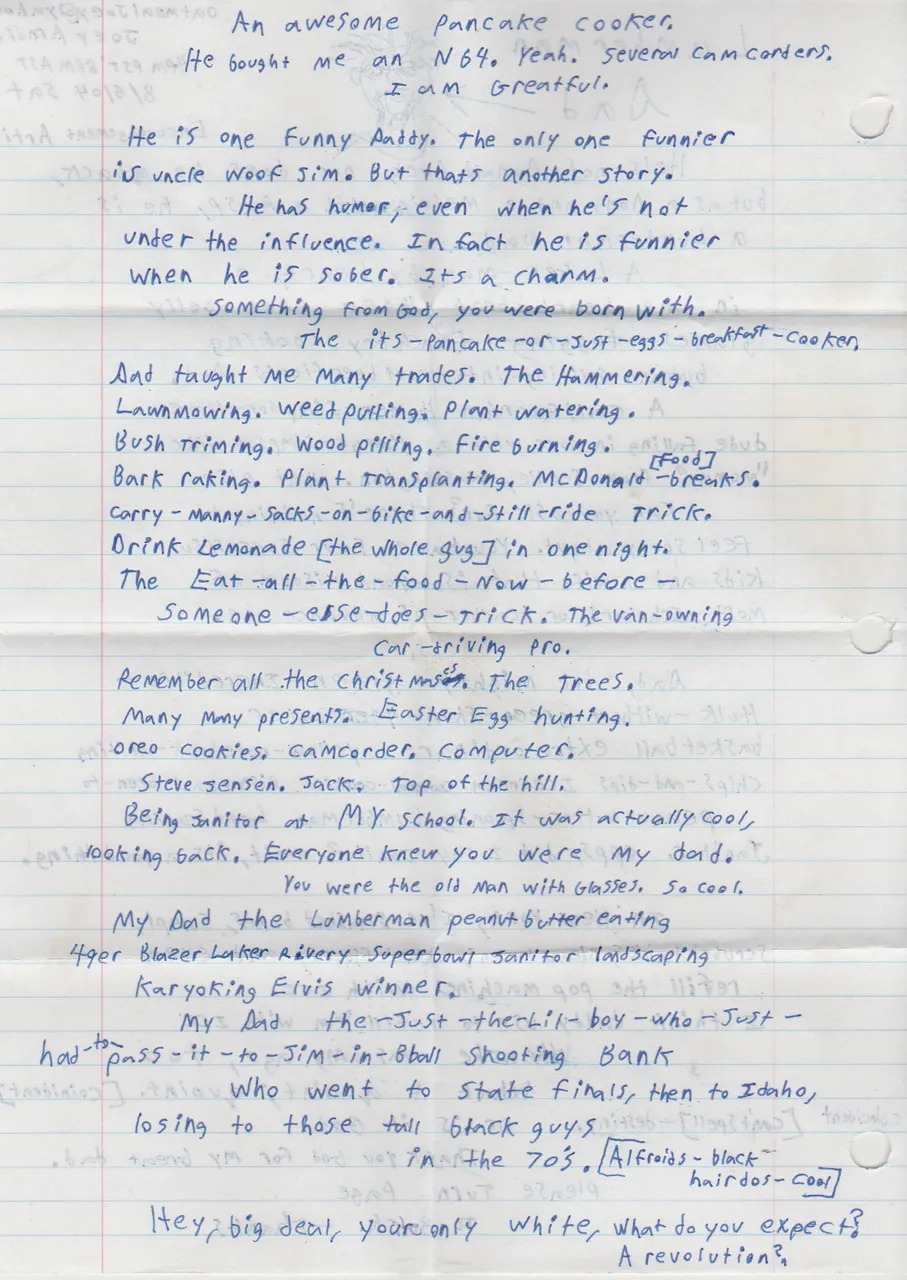 An awesome pancake cooker.
He bought me an N64. Yeah. Several camcorders.
I am Greatful.
He is one funny Daddy. The only one funnier
is uncle woof sim. But thats another story.
He has humor, even when he's not
under the influence. In fact he is funnier
when he is sober. Its a charm.
Something from God, you were born with.
The its-pancake-or-just-eggs-breakfast-cooker.
And taught me many trades. The Hammering.
Lawnmowing. Weed pulling. Plant watering.
Bush Triming. Wood pilling. Fire burning.
[Food]
Bark raking. Plant Transplanting. McDonald-breaks.
Carry-manny-sacks-on-bike-and-still-ride Trick.
Drink Lemonade [the whole gug] in one night.
The Eat-all-the-food-Now-before-
Someone-else-does-Trick. The van-owning
Car-driving pro.
Remember all the christmases. The Trees.
Many Many presents. Easter Egg hunting.
oreo cookies. Camcorder. Computer.
Steve Jensen. Jack. Top of the hill.
Being Janitor at MY school. It was actually cool,
looking back. Everyone knew you were my dad.
You were the old man with Glasses. So cool.
My Dad the Lumberman peanut butter eating
49er Blazer Laker Rivery Superbowl Janitor landscaping
Karyoking Elvis winner.
My Dad the-Just-the-Lil-boy-who-Just-
had-to-pass-it-to-Jim-in-Bball Shooting Bank
Who went to state finals, then to Idaho,
losing to those tall black guys
in the 70's. [Alfroids-black-
hairdos-cool]
Hey, big deal, your only white, what do you expect?
A revolution?